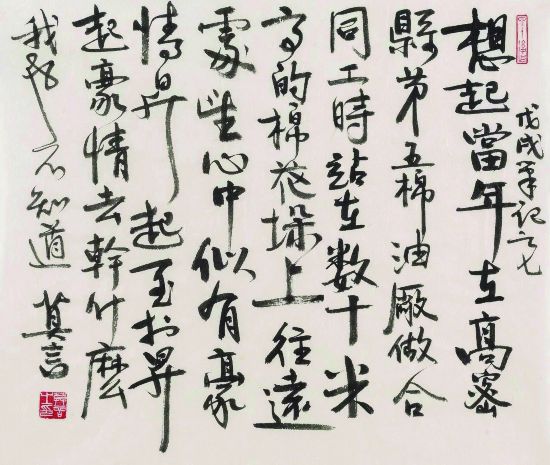 戊戌筆記之七
想起當年在高密
縣第五棉油廠做合
同工時站在数十米
高的棉花垛上往遠
處望心中似有豪
情昇起至於昇
起豪情去幹什麼
我却不知道 莫言